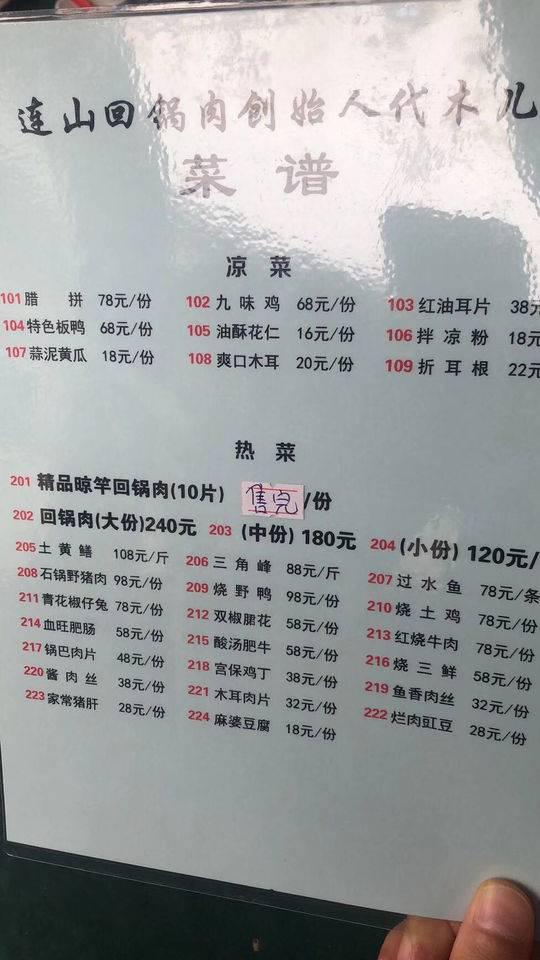 连山回锅肉创始人代木儿
菜谱
凉菜
101 腊拼 78元/份 102 九味鸡 68元/份 103 红油耳片 38元
104 特色板鸭 68元/份 105 油酥花仁 16元/份 106 拌凉粉 18元
107 蒜泥黄瓜 18元/份 108 爽口木耳 20元/份 109 折耳根 22元
热菜
201 精品晾竿回锅肉(10片) 售完 /份
202 回锅肉(大份)240元 203 (中份) 180元 204 (小份) 120元/
205 土黄鳝 108元/斤 206 三角峰 88元/斤 207 过水鱼 78元/条
208 石锅野猪肉 98元/份 209 烧野鸭 98元/份 210 烧土鸡 78元/份
211 青花椒仔兔 78元/份 212 双椒䐁花 58元/份 213 红烧牛肉 78元/份
214 血旺肥肠 58元/份 215 酸汤肥牛 58元/份 216 烧三鲜 58元/份
217 锅巴肉片 48元/份 218 宫保鸡丁 38元/份 219 鱼香肉丝 32元/份
220 酱肉丝 38元/份 221 木耳肉片 32元/份 222 烂肉豇豆 28元/份
223 家常猪肝 28元/份 224 麻婆豆腐 18元/份